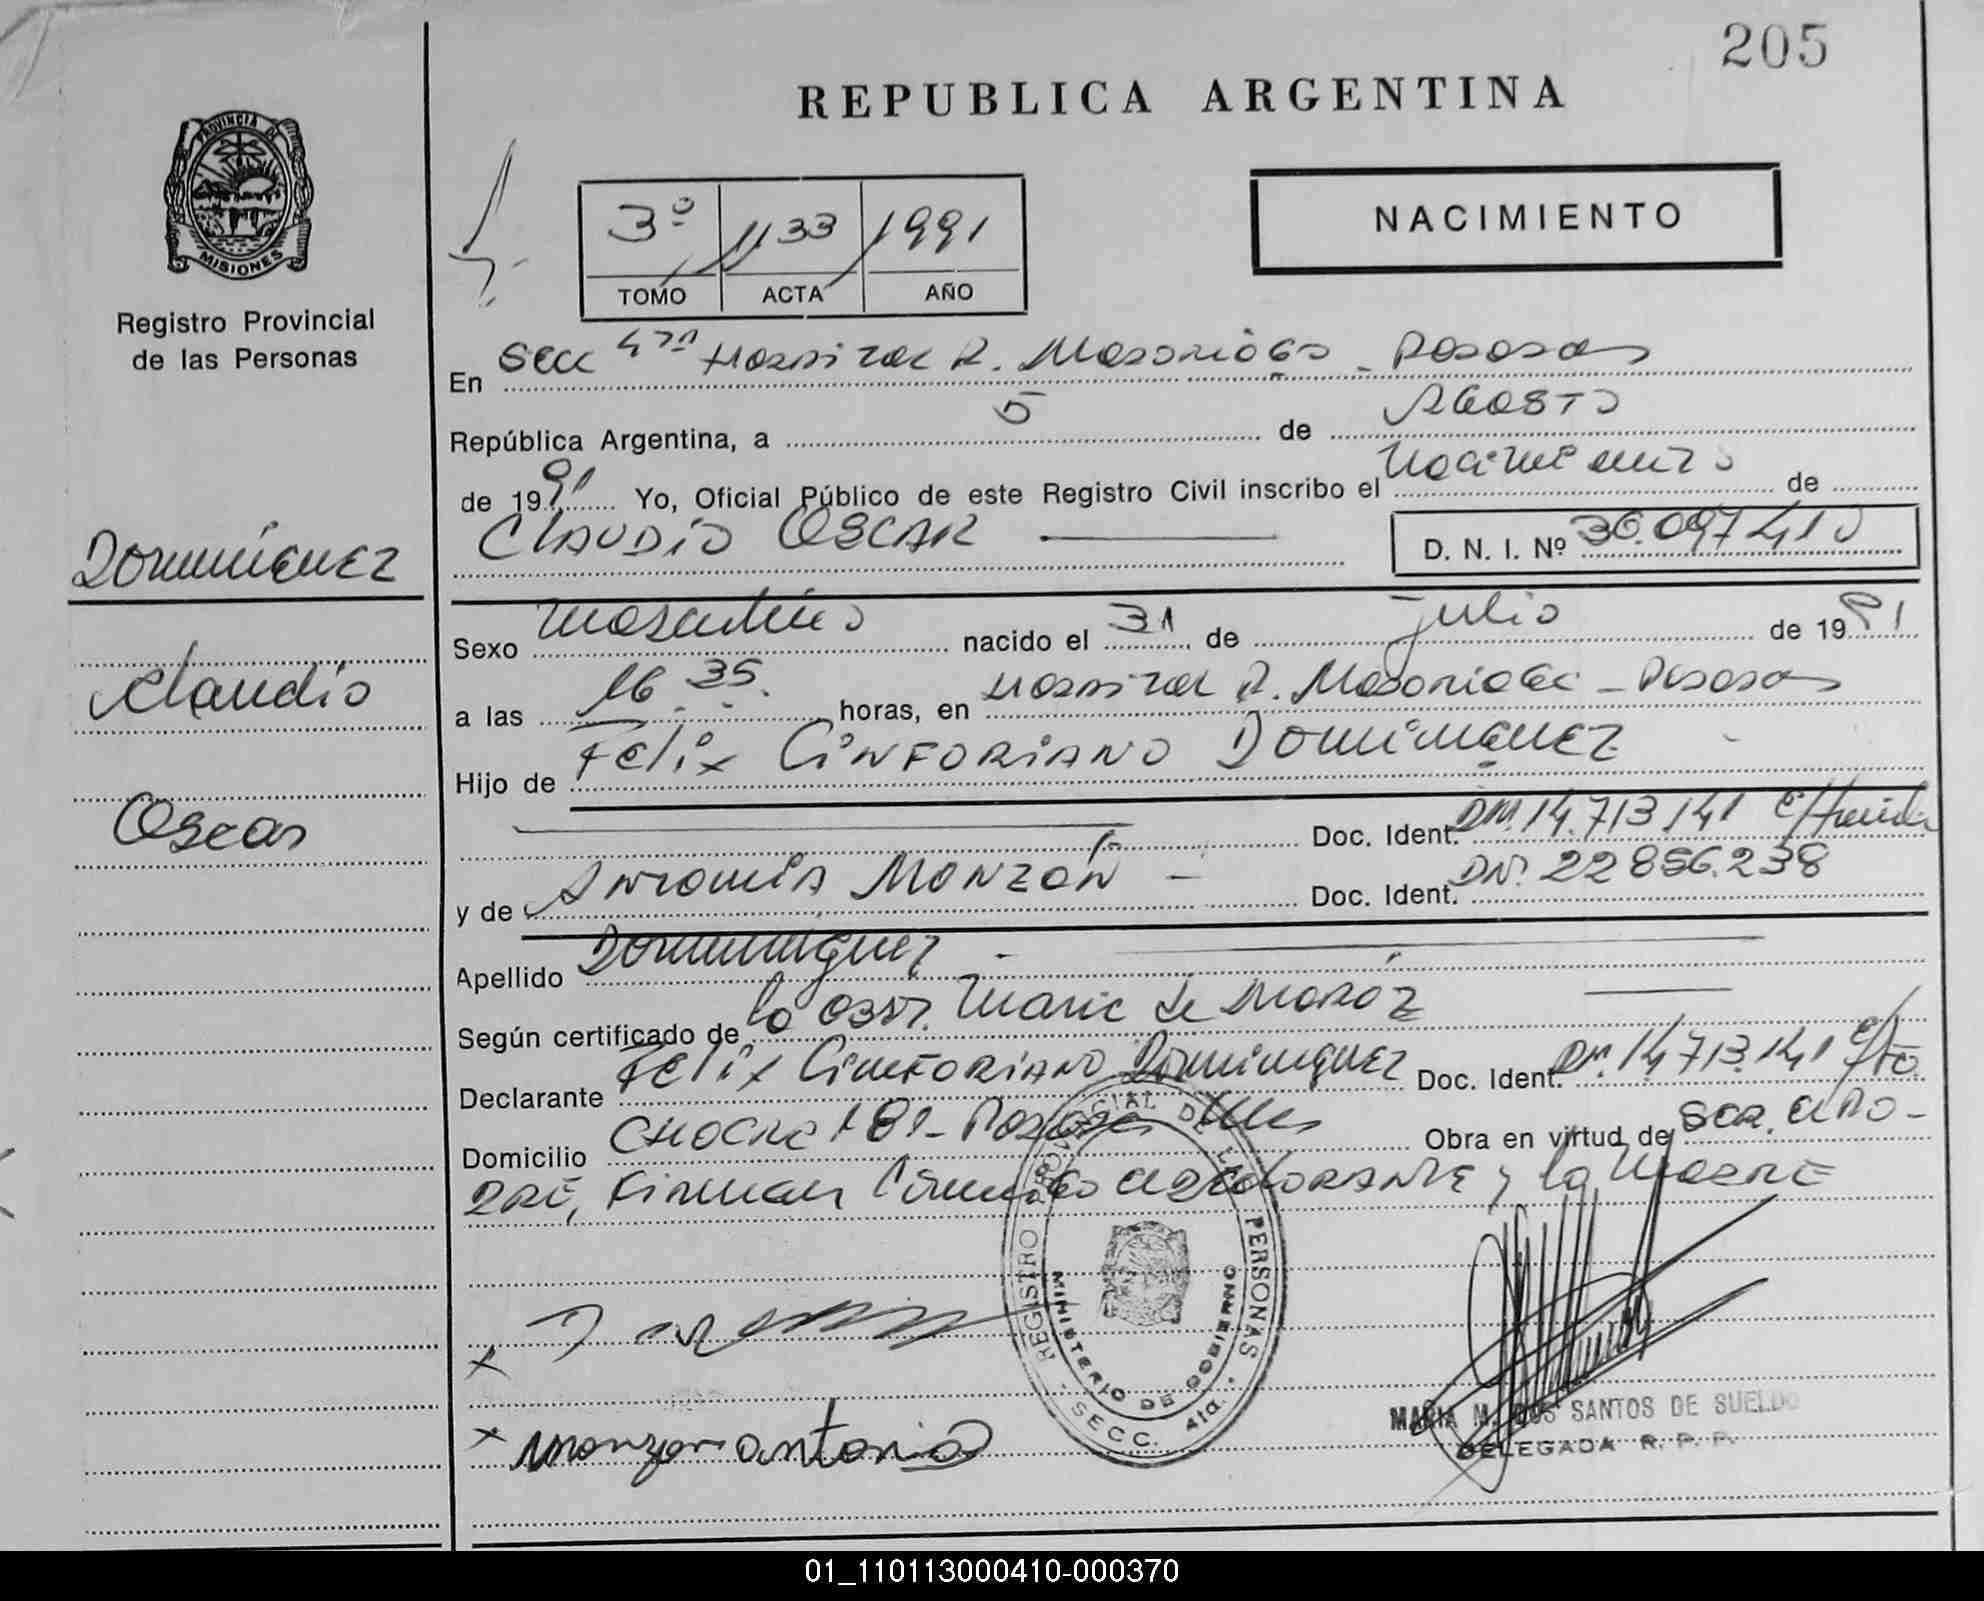 205
REPUBLICA ARGENTINA
PROVINCIA DE
MISIONES
Registro Provincial
de las Personas
3º 1133 1991
TOMO ACTA AÑO
NACIMIENTO
En Secc 4ta Hospital R. Madariaga - Posadas
República Argentina, a 5 de Agosto
de 1991 Yo, Oficial Público de este Registro Civil inscribo el Nacimiento de
CLAUDIO OSCAR D. N. I. Nº 36.097.410
Dominguez
Claudio
Oscar
Sexo Masculino nacido el 31 de julio de 1991
a las 16.35. horas, en Hospital R. Madariaga - Posadas
Hijo de Felix CINFORIANO DOMINGUEZ
Doc. Ident. DNI. 14.713.141
y de Antonia MONZÓN - Doc. Ident. DNI. 22.856.238
Apellido Dominguez -
Según certificado de la Obst. Marie de Moroz
Declarante Felix CINFORIANO Dominguez Doc. Ident. DNI. 14.713.141
Domicilio Chacra 181 - Posadas Mnes Obra en virtud de Ser el Pa-
dre, Firman conmigo el declorante y la Madre
REGISTRO PROVINCIAL DE LAS PERSONAS
MINISTERIO DE GOBIERNO
- SECC. 4ta. -
x
x Monzon antonia
MARIA M. DOS SANTOS DE SUELDO
DELEGADA R. P. P.
01_110113000410-000370